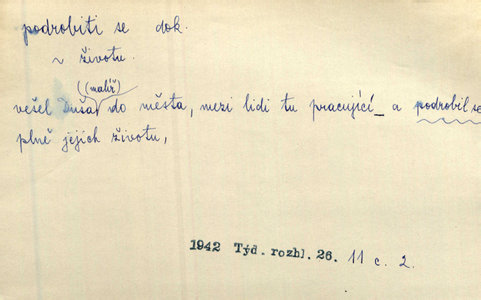 podrobiti se dok.
~ životu.
(malíř)
vešel Dušal do města, mezi lidi tu pracující_ a podrobil se
plně jejich životu,
1942 Týd. rozhl. 26. 11 c. 2.